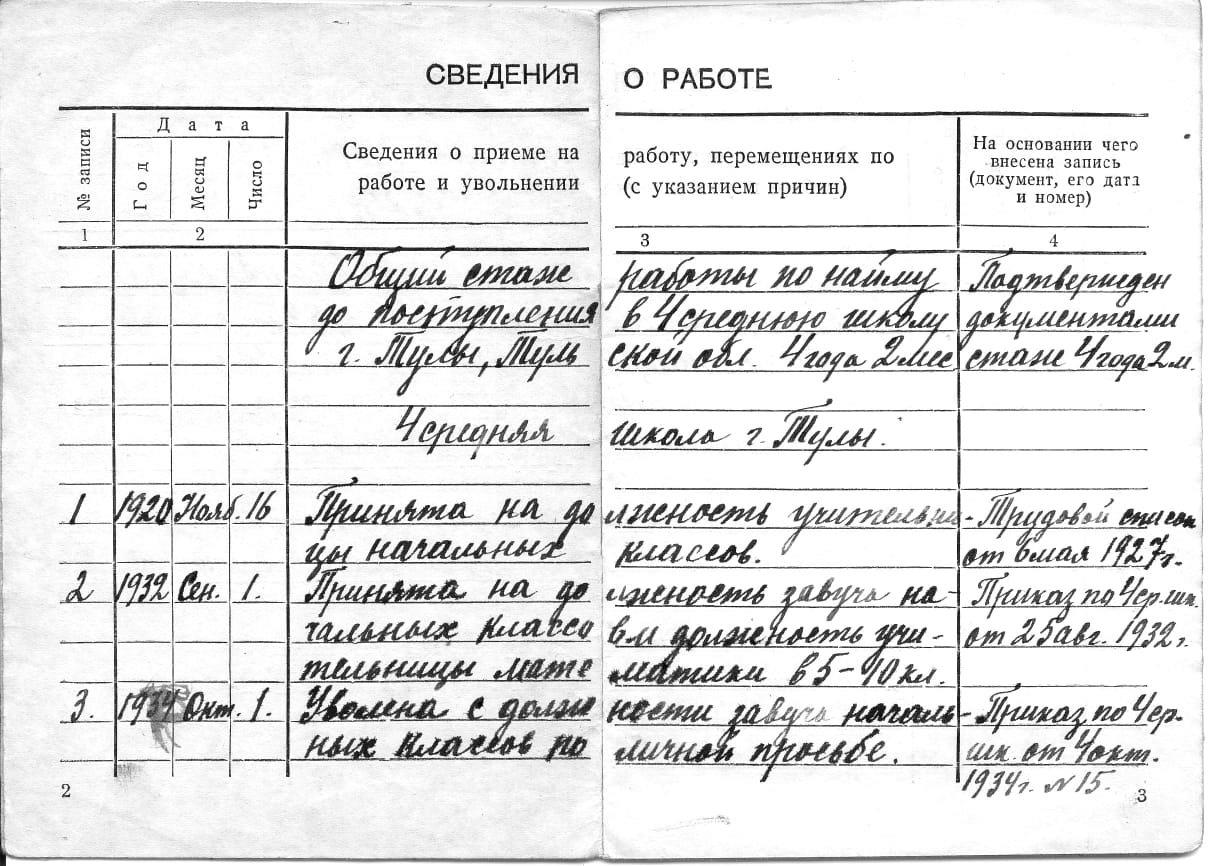 СВЕДЕНИЯ О РАБОТЕ
№ записи
Дата
Год
Месяц
Число
Сведения о приеме на работу, перемещениях по
работе и увольнении (с указанием причин)
На основании чего
внесена запись
(документ, его дата
и номер)
1 2 3 4
Общий стаж работы по найму Подтвержден
до поступления в 4 среднюю школу документами
г. Тулы, Туль ской обл. 4 года 2 мес стаж 4 года 2 м.
4 средняя школа г. Тулы.
1 1920 Нояб. 16 Принята на до лжность учительни- Трудовой список
цы начальных классов. от 6 мая 1927 г.
2 1932 Сен. 1. Принята на до лжность завуча на- Приказ по 4 ер. шк.
чальных классо в и должность учи- от 25 авг. 1932 г.
тельницы мате матики в 5-10 кл.
3. 1934 Окт. 1. Уволена с долж ности завуча началь- Приказ по 4 ер.
ных классов по личной просьбе. шк. от 4 окт.
1934 г. N 15.
2 3